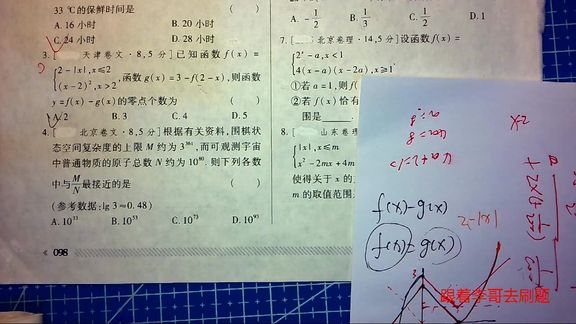 33 ℃的保鲜时间是 ( )
A. 16 小时 B. 20 小时
C. 24 小时 D. 28 小时
3. [ 天津卷文·8,5 分]已知函数 f(x)=
{2-|x|,x≤2
(x-2)²,x>2,函数 g(x)=3-f(2-x),则函数
y=f(x)-g(x)的零点个数为 ( )
A. 2 B. 3 C. 4 D. 5
4. [ 北京卷文·8,5 分]根据有关资料,围棋状
态空间复杂度的上限 M 约为 3³⁶¹,而可观测宇宙
中普通物质的原子总数 N 约为 10⁸⁰. 则下列各数
中与 M/N 最接近的是 ( )
(参考数据:lg 3≈0.48)
A. 10³³ B. 10⁵³ C. 10⁷³ D. 10⁹³
098
A. -1/2 B. 1/3 C. 1/2 D. 1
7. [ 北京卷理·14,5 分]设函数 f(x)=
{2ˣ-a,x<1
4(x-a)(x-2a),x≥1.
①若 a=1,则 f(
②若 f(x)恰有
围是
8. [ 山东卷理
{|x|,x≤m
x²-2mx+4m
使得关于 x 的
m 的取值范围
f(x)-g(x)
2-|x|
f(x)=g(x)
3
跟着李哥去刷题